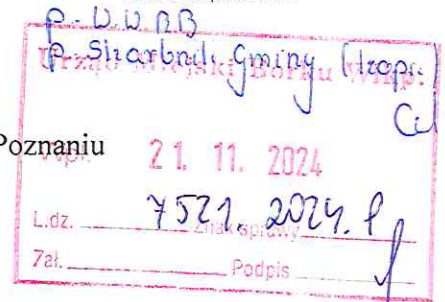 p. Skarbnik Gminy
Urząd Miejski Borku Wlkp.
Poznaniu
Wpł. 21. 11. 2024
L.dz. 7521. 2024. P
Znak sprawy
Zał. Podpis